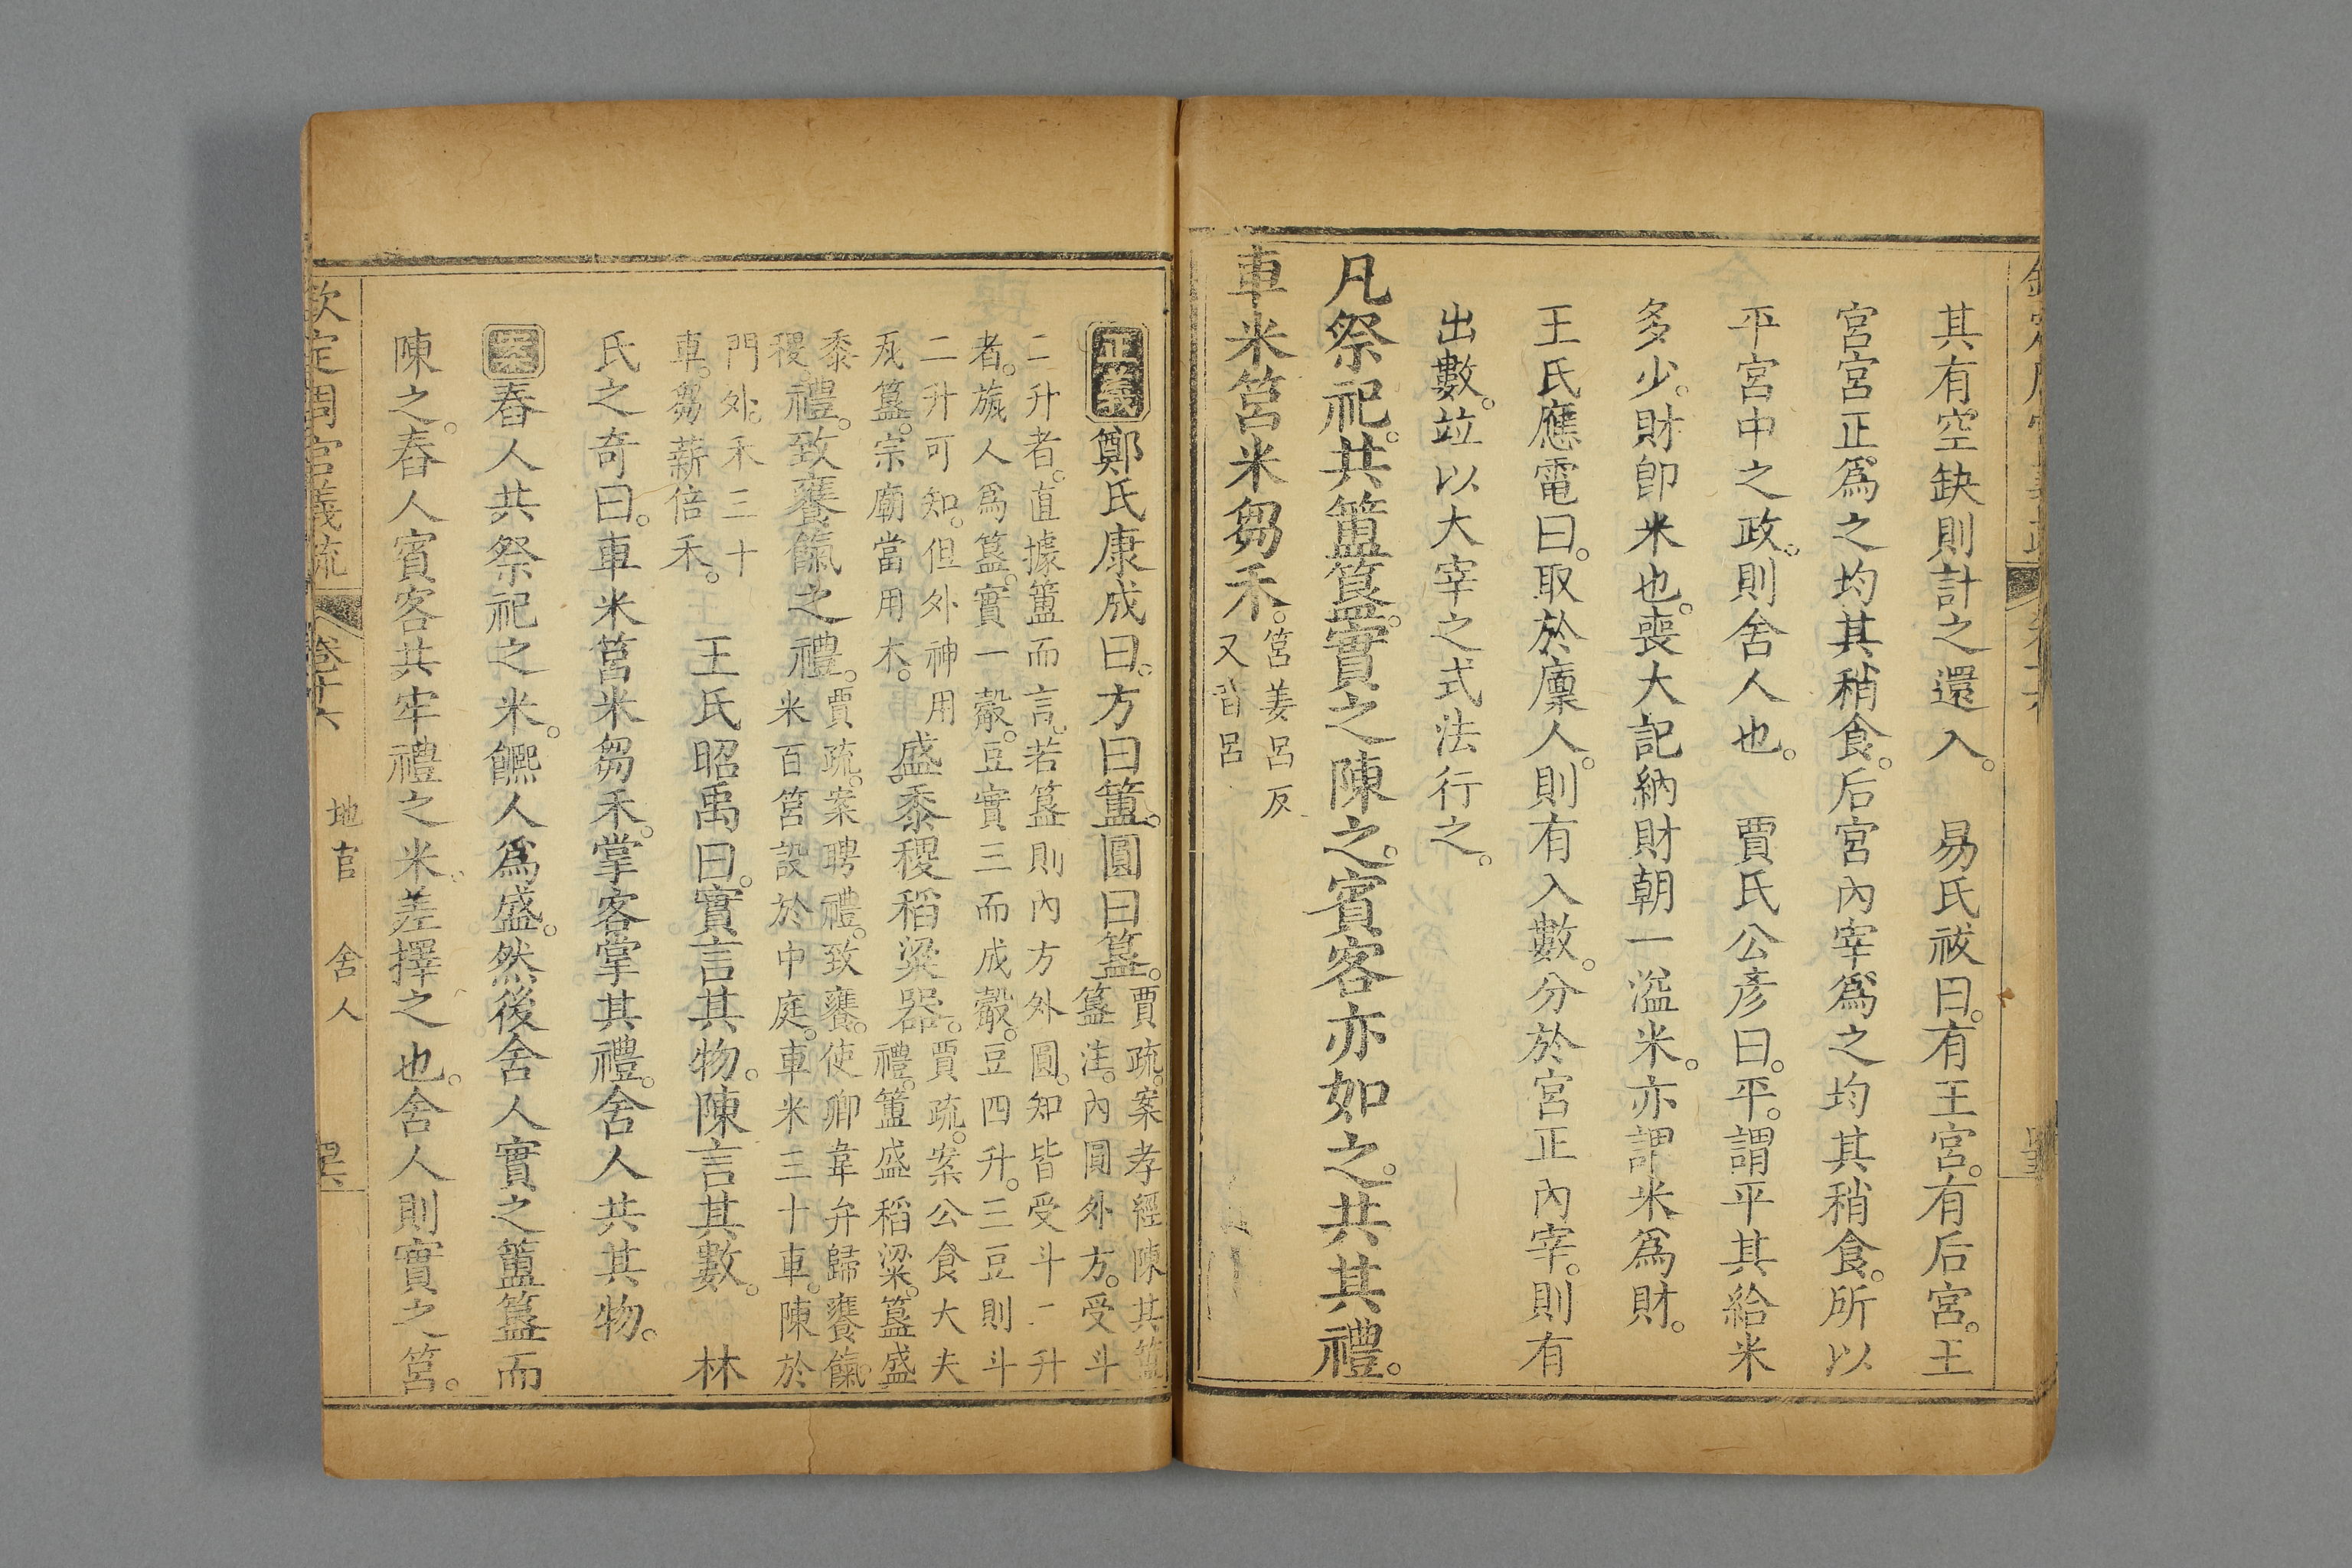 其有空缺則計之還入。　易氏祓曰。有王宮。有后宮。王
宮宮正爲之均其稍食。后宮內宰爲之均其稍食。所以
平宮中之政。則舍人也。　賈氏公彥曰。平。謂平其給米
多少。財卽米也。喪大記納財朝一溢米。亦謂米爲財。
王氏應電曰。取於廩人。則有入數。分於宮正內宰。則有
出數。竝以大宰之式法行之。
凡祭祀。共簠簋。實之陳之。賓客亦如之。共其禮。
車米筥米芻禾。
筥姜呂反
又音呂
正義鄭氏康成曰。方曰簠。圓曰簋。
賈疏。案孝經陳其簠
簋注。內圓外方。受斗
二升者。直據簠而言。若簋則內方外圓。知皆受斗二升
者。瓬人爲簋。實一觳。豆實三而成觳。豆四升。三豆則斗
二升可知。但外神用
瓦簋。宗廟當用木。
盛。黍稷稻粱器。
賈疏。案公食大夫
禮。簠盛稻粱。簋盛
黍
稷。
禮。致饔餼之禮。
賈疏。案聘禮。致饔。使卿韋弁歸饔餼。
米百筥設於中庭。車米三十車。陳於
門外。禾三十
車。芻薪倍禾。
王氏昭禹曰。實言其物。陳言其數。　林
氏之奇曰。車米筥米芻禾。掌客掌其禮。舍人共其物。
案舂人共祭祀之米。饎人爲盛。然後舍人實之簠簋而
陳之。舂人賓客共牢禮之米。差擇之也。舍人則實之筥。
欽定周官義疏　卷十六　地官　舍人